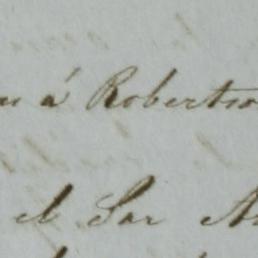 á Robertso
el Sor A